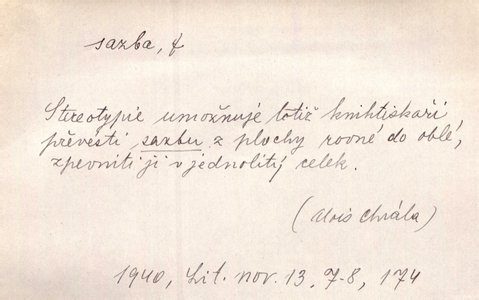 sazba, f
Stereotypie umožnuje totiž knihtiskaři
převésti sazbu z plochy rovné do oblé,
zpevniti ji v jednolitý celek.
(Alois Chvála)
1940, Lit. nov. 13, 7-8, 174